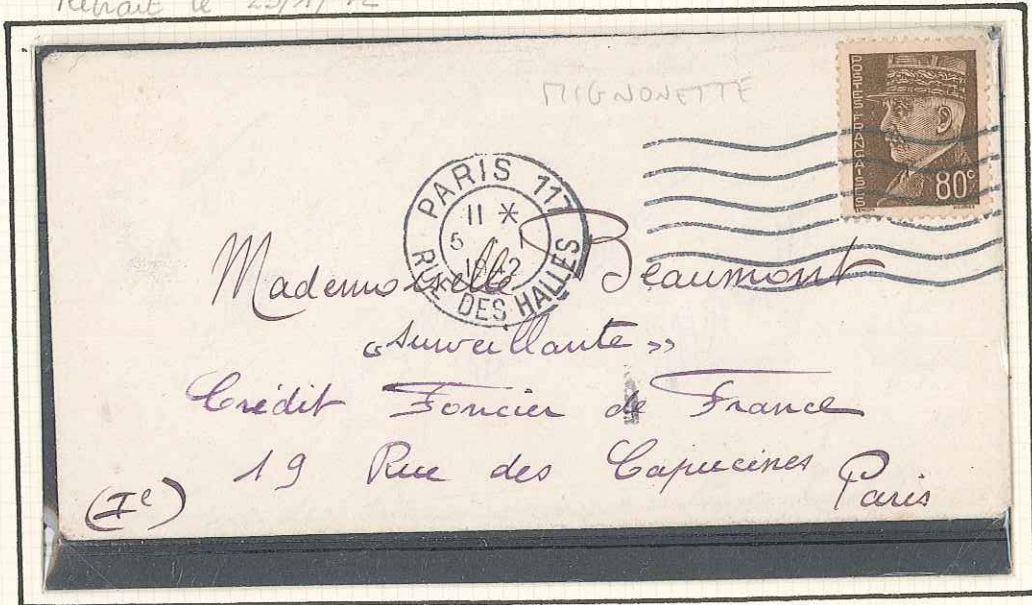 Retrait le
MIGNONETTE
POSTES FRANÇAISES
80c
PARIS 117
11 *
5 1
1942
RUE DES HALLES
Mademoiselle Beaumont
"surveillante"
Crédit Foncier de France
19 Rue des Capucines
Paris
(Ie)